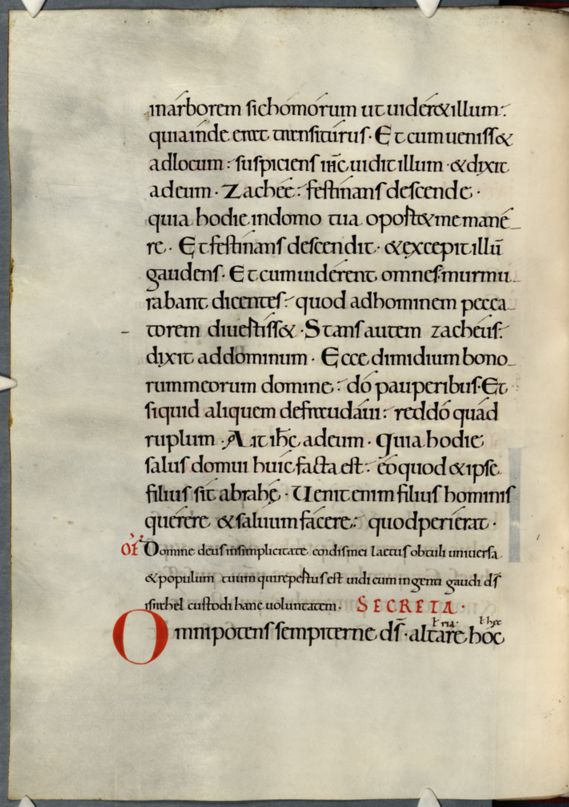 inarborem sichomorum ut uider&illum:
quia inde erat transiturus. Et cum ueniss&
adlocum: suspiciens ihc̅ uidit illum. &dixit
adeum. Zachee: festinans descende.
quia hodie indomo tua oport& me mane
re. Et festinans descendit. &excepit illū
gaudens. Et cum uiderent omnes murmu
rabant dicentes: quod adhominem pecca
torem diuertiss&. Stans autem zacheus:
dixit addominum. Ecce dimidium bono
rum meorum domine: do pauperibus. Et
siquid aliquem defraudaui: reddo quad
ruplum. Ait ihc̅ adeum. Quia hodie
salus domui huic facta est: eo quod &ipse
filius sit abrahę. Uenit enim filius hominis
querere &saluum facere: quod perierat.
Of Domine deus insimplicitate cordis mei laetus obtuli uniuersa
&populum tuum qui repertus est uidi cum ingenti gaudi ds̅
israhel custodi hanc uoluntatem. SECRETA.
ł ria. ł hęc
Omnipotens sempiterne ds̅. altare hoc